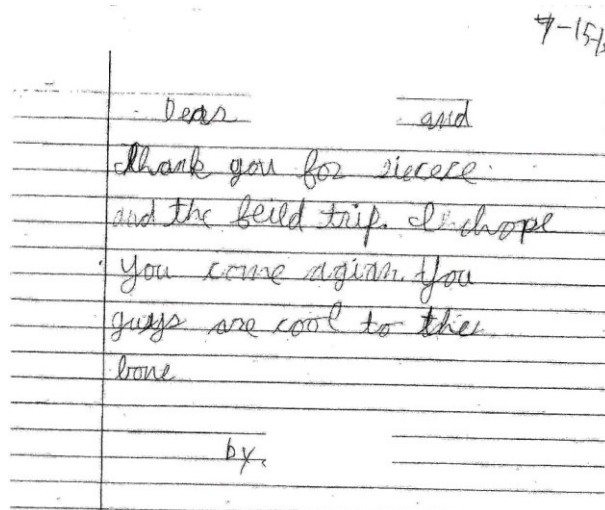 Dear and
thank you for siecese
and the feild trip. I hope
you come agian you
guys are cool to the
bone
by.